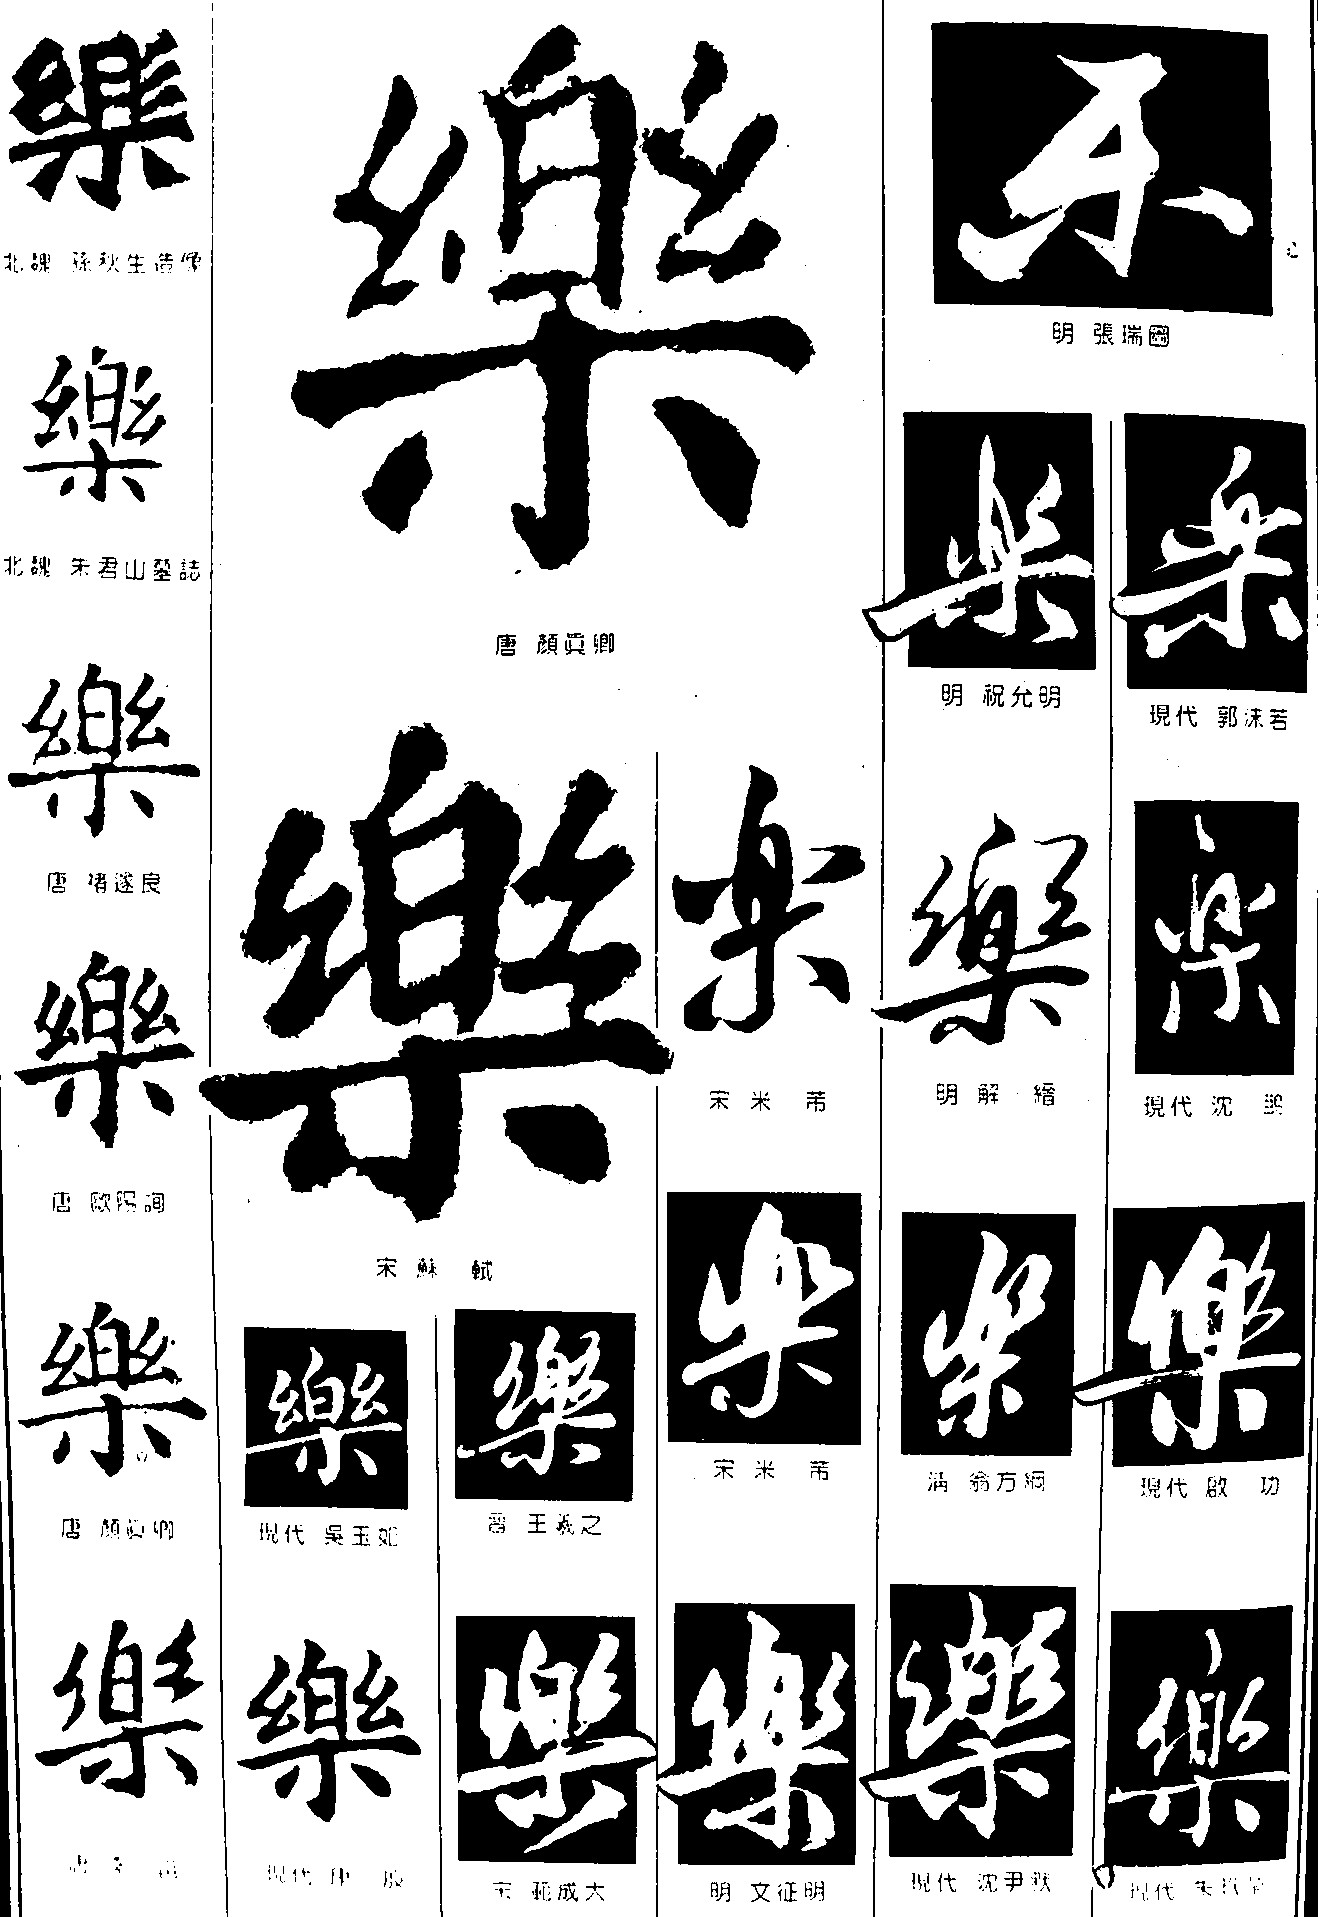 樂
北魏 孫秋生造像
樂
北魏 朱君山墓誌
樂
唐 褚遂良
樂
唐 歐陽詢
樂
唐 顏眞卿
樂
樂
唐 顏眞卿
樂
宋 蘇 軾
樂
現代 吳玉如
樂
現代
樂
晉 王羲之
樂
宋 范成大
楽
宋 米 芾
楽
宋 米 芾
樂
明 文征明
乐
明 張瑞圖
楽
明 祝允明
樂
明 解 縉
樂
清 翁方綱
樂
現代 沈尹默
楽
現代 郭沫若
楽
現代 沈 鵬
樂
現代 啟 功
樂
現代